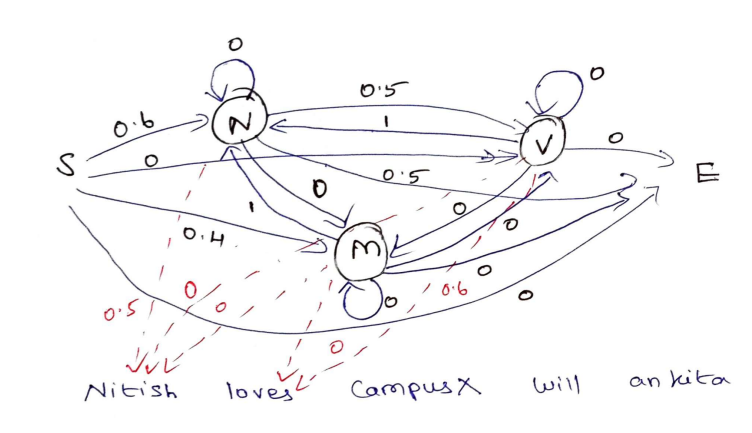 0
0
0.6
0.5
N
1
V
0
S
0
0.5
E
0
0
1
0
0.4
M
0
0
0.6
0
0
0.5
0
0
Nitish loves CampusX will ankita